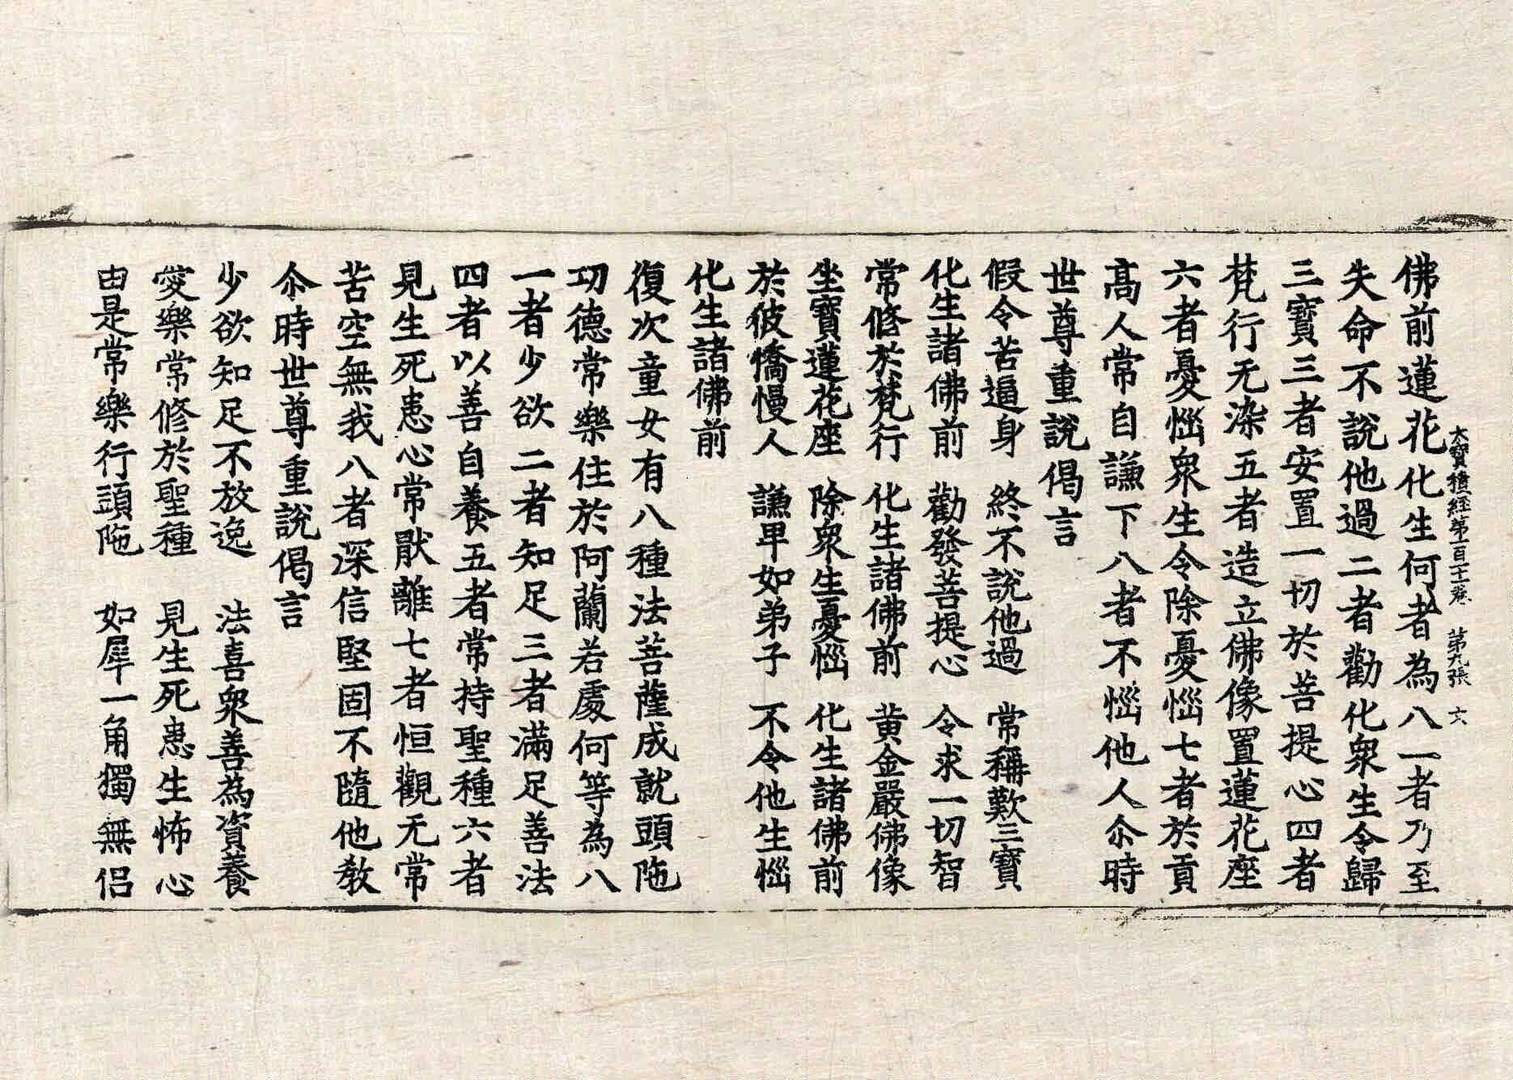 大寶積經第一百十一卷　第九張　文
佛前蓮花化生何者為八一者乃至
失命不說他過二者勸化衆生令歸
三寶三者安置一切於菩提心四者
梵行无染五者造立佛像置蓮花座
六者憂惱衆生令除憂惱七者於貢
高人常自謙下八者不惱他人尒時
世尊重說偈言
假令苦逼身　終不說他過　常稱歎三寶
化生諸佛前　勸發菩提心　令求一切智
常修於梵行　化生諸佛前　黃金嚴佛像
坐寶蓮花座　除衆生憂惱　化生諸佛前
於彼憍慢人　謙卑如弟子　不令他生惱
化生諸佛前
復次童女有八種法菩薩成就頭陁
功德常樂住於阿蘭若處何等為八
一者少欲二者知足三者滿足善法
四者以善自養五者常持聖種六者
見生死患心常猒離七者恒觀无常
苦空無我八者深信堅固不隨他教
尒時世尊重說偈言
少欲知足不放逸　法喜衆善為資養
愛樂常修於聖種　見生死患生怖心
由是常樂行頭陁　如犀一角獨無侶